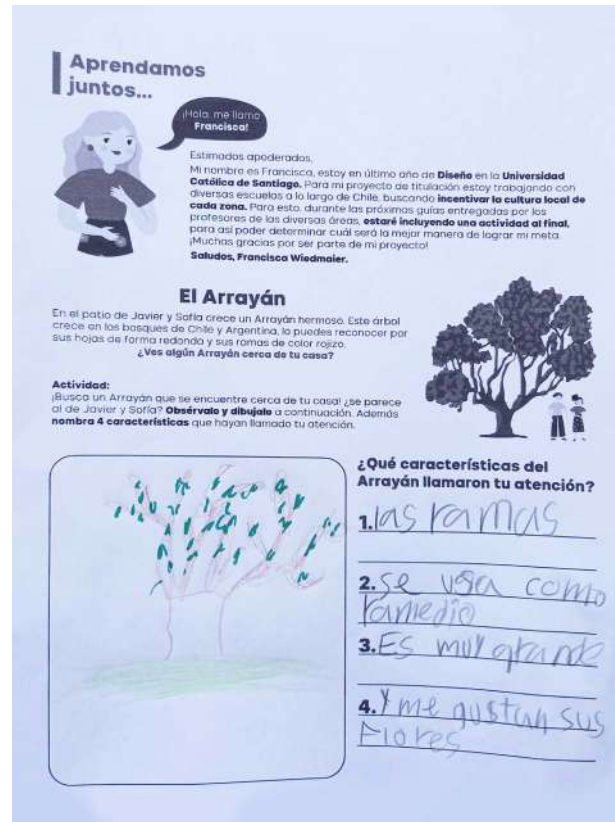 Aprendamos
juntos...
¡Hola, me llamo
Francisca!
Estimados apoderados,
Mi nombre es Francisca, estoy en último año de Diseño en la Universidad
Católica de Santiago. Para mi proyecto de titulación estoy trabajando con
diversas escuelas a lo largo de Chile, buscando incentivar la cultura local de
cada zona. Para esto, durante las próximas guías entregadas por los
profesores de las diversas áreas, estaré incluyendo una actividad al final,
para así poder determinar cuál será la mejor manera de lograr mi meta.
¡Muchas gracias por ser parte de mi proyecto!
Saludos, Francisca Wiedmaier.
El Arrayán
En el patio de Javier y Sofía crece un Arrayán hermoso. Este árbol
crece en los bosques de Chile y Argentina, lo puedes reconocer por
sus hojas de forma redonda y sus ramas de color rojizo.
¿Ves algún Arrayán cerca de tu casa?
Actividad:
¡Busca un Arrayán que se encuentre cerca de tu casa! ¿se parece
al de Javier y Sofía? Obsérvalo y dibujalo a continuación. Además
nombra 4 características que hayan llamado tu atención.
¿Qué características del
Arrayán llamaron tu atención?
1. las ramas
2. se usa como
ramedio
3. Es muy grande
4. Y me gustan sus
Flores